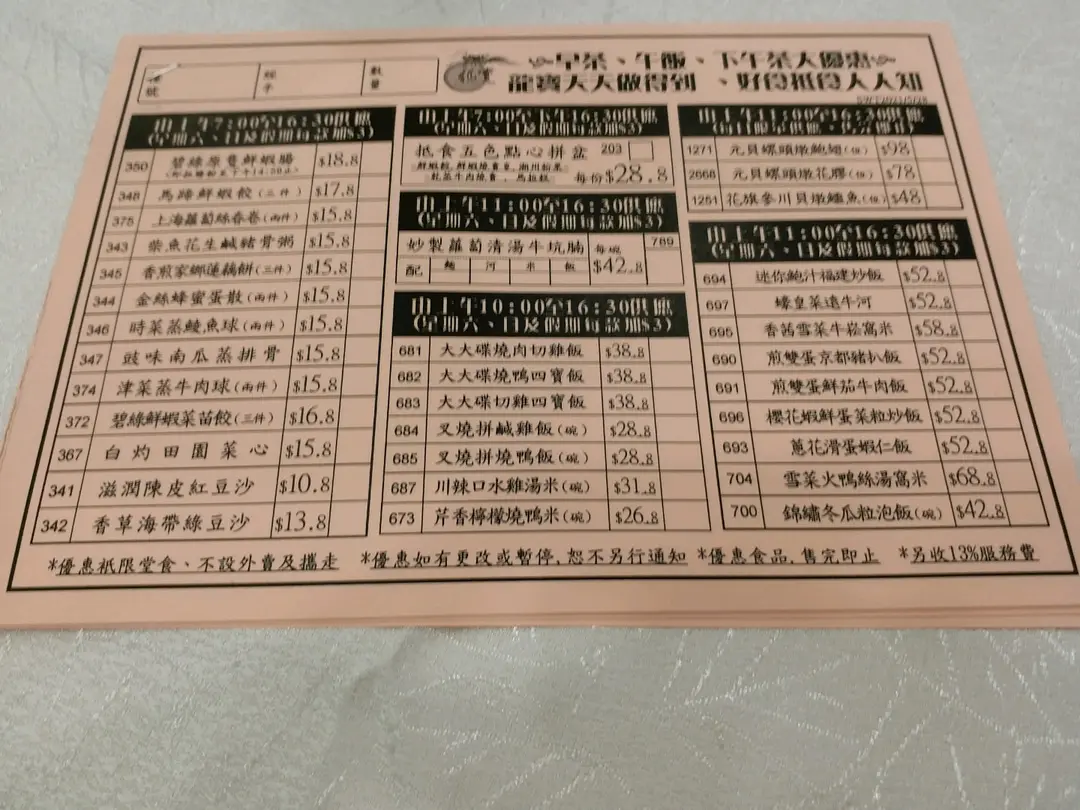 早茶、午飯、下午茶大優惠
龍寶天天做得到、好食抵食人人知
數量
由上午7:00至16:30供應
(星期六、日及假期每款加$3)
350 碧綠原隻鮮蝦腸 $18.8
348 馬蹄鮮蝦餃(三件) $17.8
375 上海蘿蔔絲春卷(兩件) $15.8
343 柴魚花生鹹豬骨粥 $15.8
345 香煎家鄉蓮藕餅(三件) $15.8
344 金絲蜂蜜蛋散(兩件) $15.8
346 時菜蒸鯪魚球(兩件) $15.8
347 豉味南瓜蒸排骨 $15.8
374 津菜蒸牛肉球(兩件) $15.8
372 碧綠鮮蝦菜苗餃(三件) $16.8
367 白灼田園菜心 $15.8
341 滋潤陳皮紅豆沙 $10.8
342 香草海帶綠豆沙 $13.8
由上午7:00至下午16:30供應
(星期六、日及假期每款加$3)
抵食五色點心拼盆 203
每份$28.8
由上午11:00至16:30供應
(星期六、日及假期每款加$3)
妙製蘿蔔清湯牛坑腩 每碗 789
配 麵 河 米 飯 $42.8
由上午10:00至16:30供應
(星期六、日及假期每款加$3)
681 大大碟燒肉切雞飯 $38.8
682 大大碟燒鴨四寶飯 $38.8
683 大大碟切雞四寶飯 $38.8
684 叉燒拼鹹雞飯(碗) $28.8
685 叉燒拼燒鴨飯(碗) $28.8
687 川辣口水雞湯米(碗) $31.8
673 芹香檸檬燒鴨米(碗) $26.8
由上午11:00至16:30供應
1271 元貝螺頭燉鮑翅(位) $98
2668 元貝螺頭燉花膠(位) $78
1251 花旗參川貝燉鱷魚(位) $48
由上午11:00至16:30供應
(星期六、日及假期每款加$3)
694 迷你鮑汁福建炒飯 $52.8
697 蠔皇菜遠牛河 $52.8
695 香茜雪菜牛崧窩米 $58.8
690 煎雙蛋京都豬扒飯 $52.8
691 煎雙蛋鮮茄牛肉飯 $52.8
696 櫻花蝦鮮蛋菜粒炒飯 $52.8
693 蔥花滑蛋蝦仁飯 $52.8
704 雪菜火鴨絲湯窩米 $68.8
700 錦繡冬瓜粒泡飯(碗) $42.8
*優惠祇限堂食、不設外賣及攜走 *優惠如有更改或暫停,恕不另行通知 *優惠食品,售完即止 *另收13%服務費